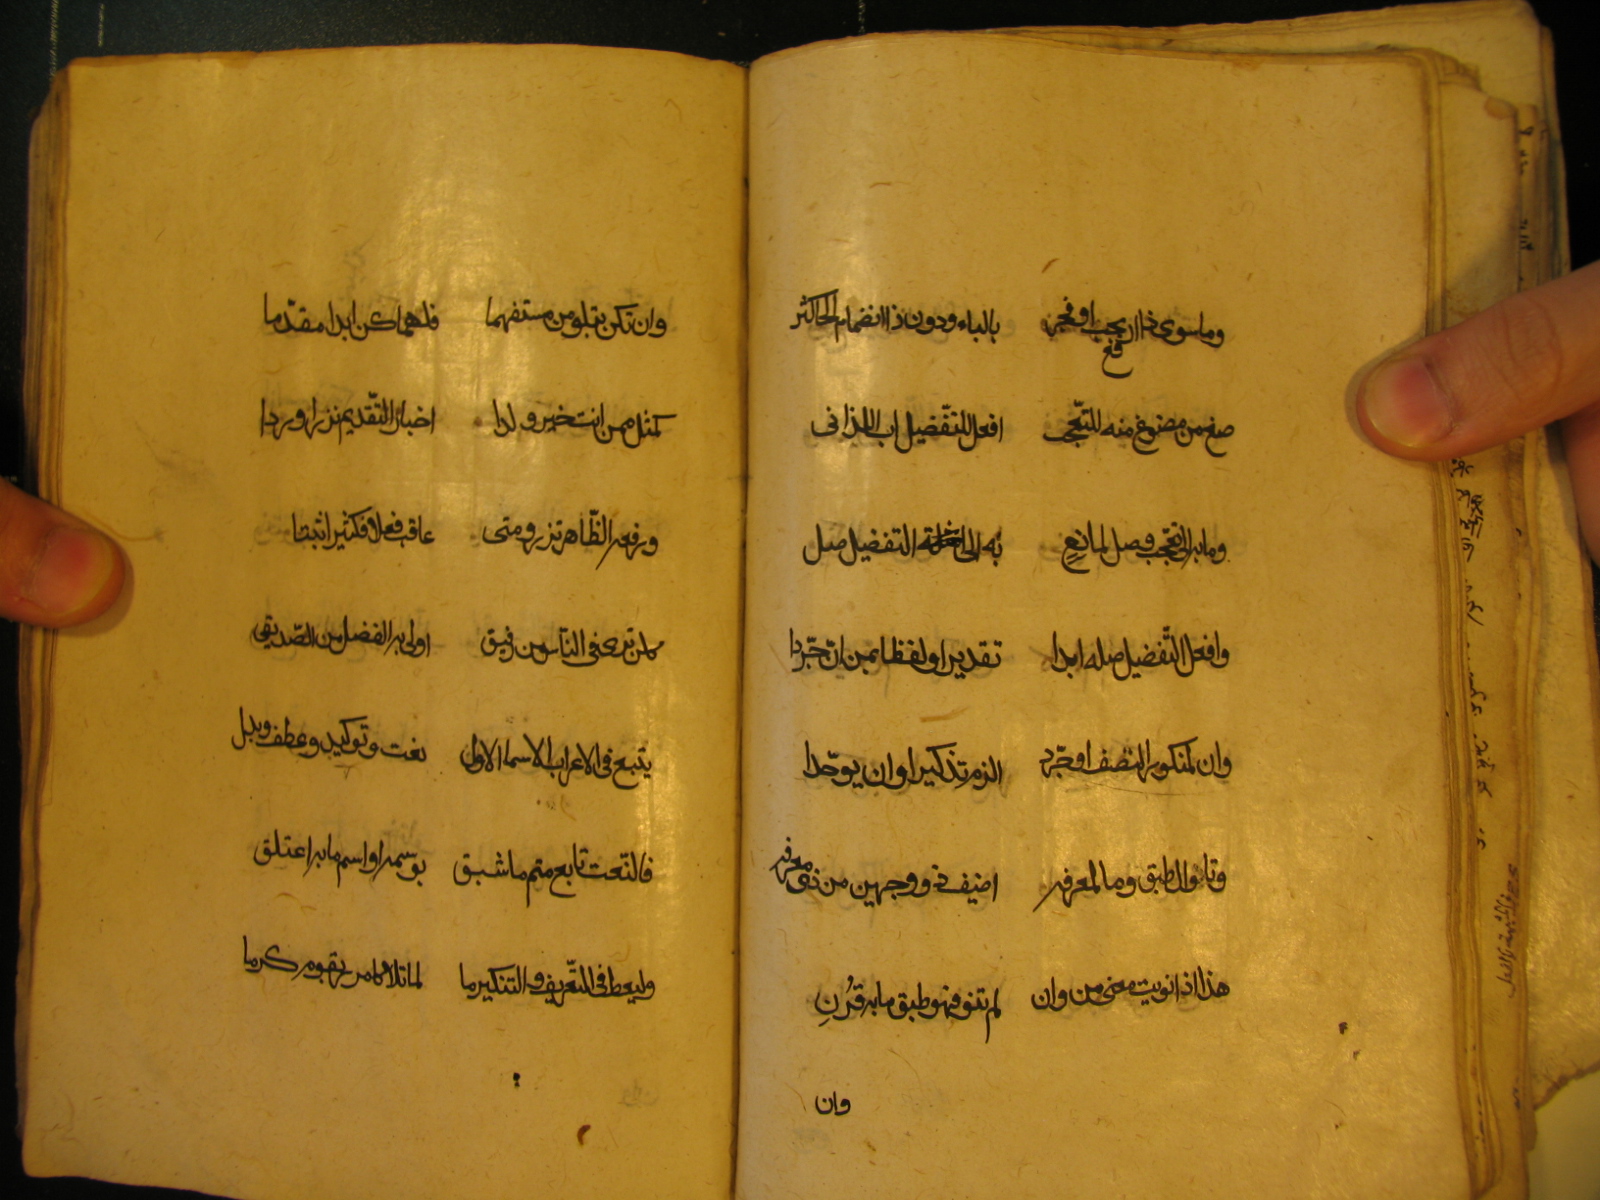 وما سوى ذا ان يجب او فجر بالباء ودون ذا انضمام الحا كثر
قع
صغ من مصوغ منه للتعجب افعل للتفضيل اب اللذ ابى
وما به الى تعجب وصل لمانع به الى التفضيل صل
وافعل التفضيل صله ابدا تقديرا او لفظا بمن ان جردا
وان لمنكور يضف او جرد الزم تذكيرا وان يوحدا
وتلو ال طبق وما لمعرفه اضيف ذو وجهين من ذي معرفه
هذا اذا نويت معنى من وان لم تنو فهو طبق ما به قرن
وان
وان تكن بتلو من مستفهما فلهما كن ابدا مقدما
كمثل ممن انت خير ولدا اخبار التقديم نزرا وردا
ورفعه الظاهر نزر ومتى عاقب فعلا فكثيرا ثبتا
كلن ترى في الناس من رفيق اولى به الفضل من الصديق
يتبع في الاعراب الاسما الاول نعت وتوكيد وعطف وبدل
فالنعت تابع متم ما سبق بوسمه او اسم ما به اعتلق
وليعط في التعريف والتنكير ما لما تلا كامرر بقوم كرما